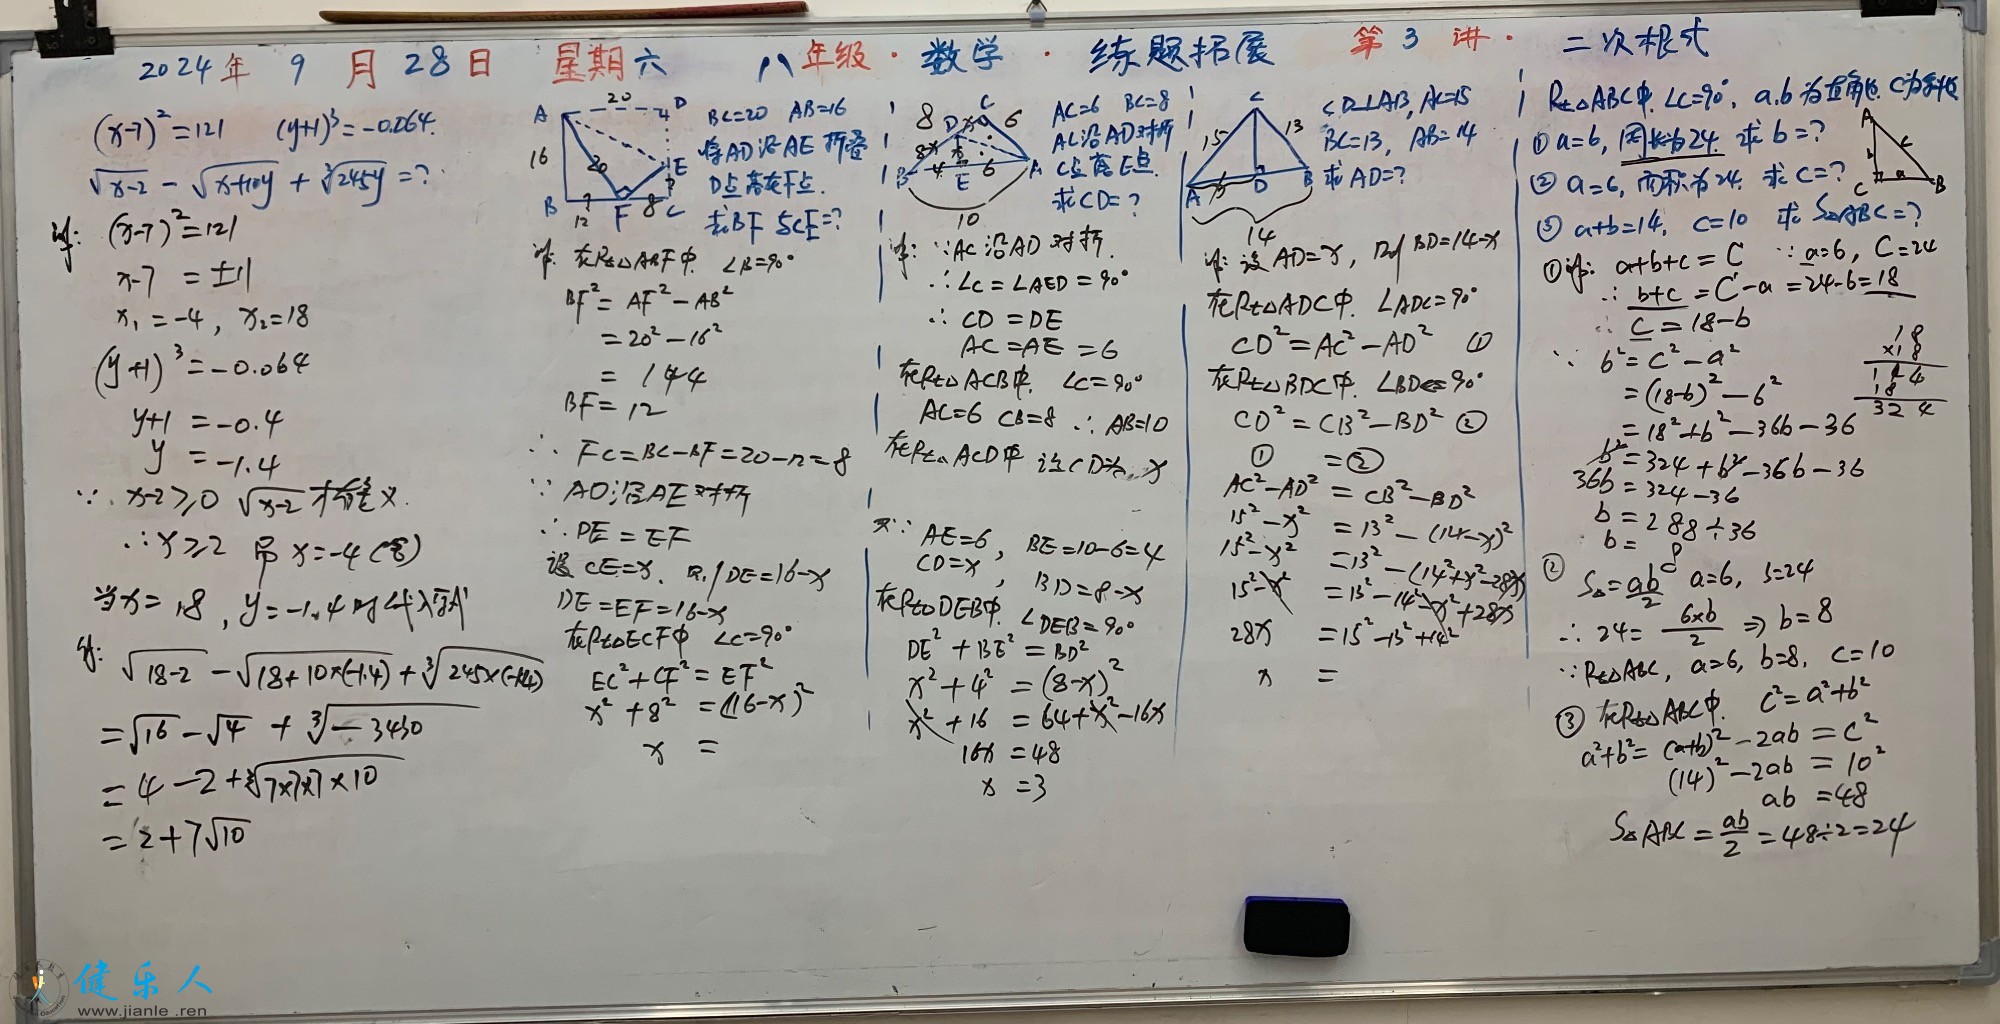 2024年 9月28日 星期六 八年级·数学·练题拓展 第3讲· 二次根式
(x-7)²=121 (y+1)³=-0.064.
√(x-2) - √(x+10y) + ³√(245y) =?
解: (x-7)²=121
x-7 = ±11
x₁=-4, x₂=18
(y+1)³=-0.064
y+1 =-0.4
y =-1.4
∵ x-2≥0 √(x-2) 才有意义.
∴x≥2 即 x=-4(舍)
当x=18, y=-1.4时代入原式
解:
√(18-2) - √(18+10×(-1.4)) + ³√(245×(-1.4))
=√16 - √4 + ³√(-3430)
=4-2+³√(7×7×7×10)
=2+7√10
A 20 D
16 20 E
B ? F 8 C
12
BC=20 AB=16
将AD沿AE折叠
D点落在F点.
求BF与CE=?
解: 在Rt△ABF中. ∠B=90°
BF²=AF²-AB²
=20²-16²
=144
BF=12
∴ FC=BC-BF=20-12=8
∵ AD沿AE对折
∴DE=EF
设CE=x. 则DE=16-x
DE=EF=16-x
在Rt△ECF中 ∠C=90°
EC²+CF²=EF²
x²+8²=(16-x)²
x =
8 D x C 6
8-x x
B 4 E 6 A
10
AC=6 BC=8
AC沿AD对折
C点落E点.
求CD=?
解: ∵AC沿AD对折.
∴∠C=∠AED=90°
∴ CD=DE
AC=AE=6
在Rt△ACB中. ∠C=90°
AC=6 CB=8 ∴AB=10
在Rt△ACD中 设CD为x
又∵ AE=6, BE=10-6=4
CD=x, BD=8-x
在Rt△DEB中. ∠DEB=90°
DE²+BE²=BD²
x²+4²=(8-x)²
x²+16=64+x²-16x
16x=48
x=3
C
15 13
A x D B
14
CD⊥AB, AC=15
BC=13, AB=14
求AD=?
解: 设AD=x, 则BD=14-x
在Rt△ADC中. ∠ADC=90°
CD²=AC²-AD² ①
在Rt△BDC中. ∠BDC=90°
CD²=CB²-BD² ②
① =②
AC²-AD²=CB²-BD²
15²-x²=13²-(14-x)²
15²-x²=13²-(14²+x²-28x)
15²-x²=13²-14²-x²+28x
28x=15²-13²+14²
x =
Rt△ABC中. ∠C=90°. a.b为直角边. C为斜边
①a=6, 周长为24. 求b=?
②a=6, 面积为24. 求c=?
③a+b=14, c=10 求S△ABC=?
A
b c
C a B
①解: a+b+c=C ∵a=6, C=24
∴ b+c=C-a=24-6=18
∴ C=18-b
∵ b²=c²-a²
=(18-b)²-6²
=18²+b²-36b-36
b²=324+b²-36b-36
36b=324-36
b=288÷36
b= 8
18
×18
144
18
324
② S△=ab/2 a=6, S=24
∴ 24= 6×b/2 ⇒ b=8
∵Rt△ABC, a=6, b=8, c=10
③ 在Rt△ABC中. c²=a²+b²
a²+b²=(a+b)²-2ab=C²
(14)²-2ab=10²
ab=48
S△ABC=ab/2=48÷2=24
健乐人
www.jianle.ren